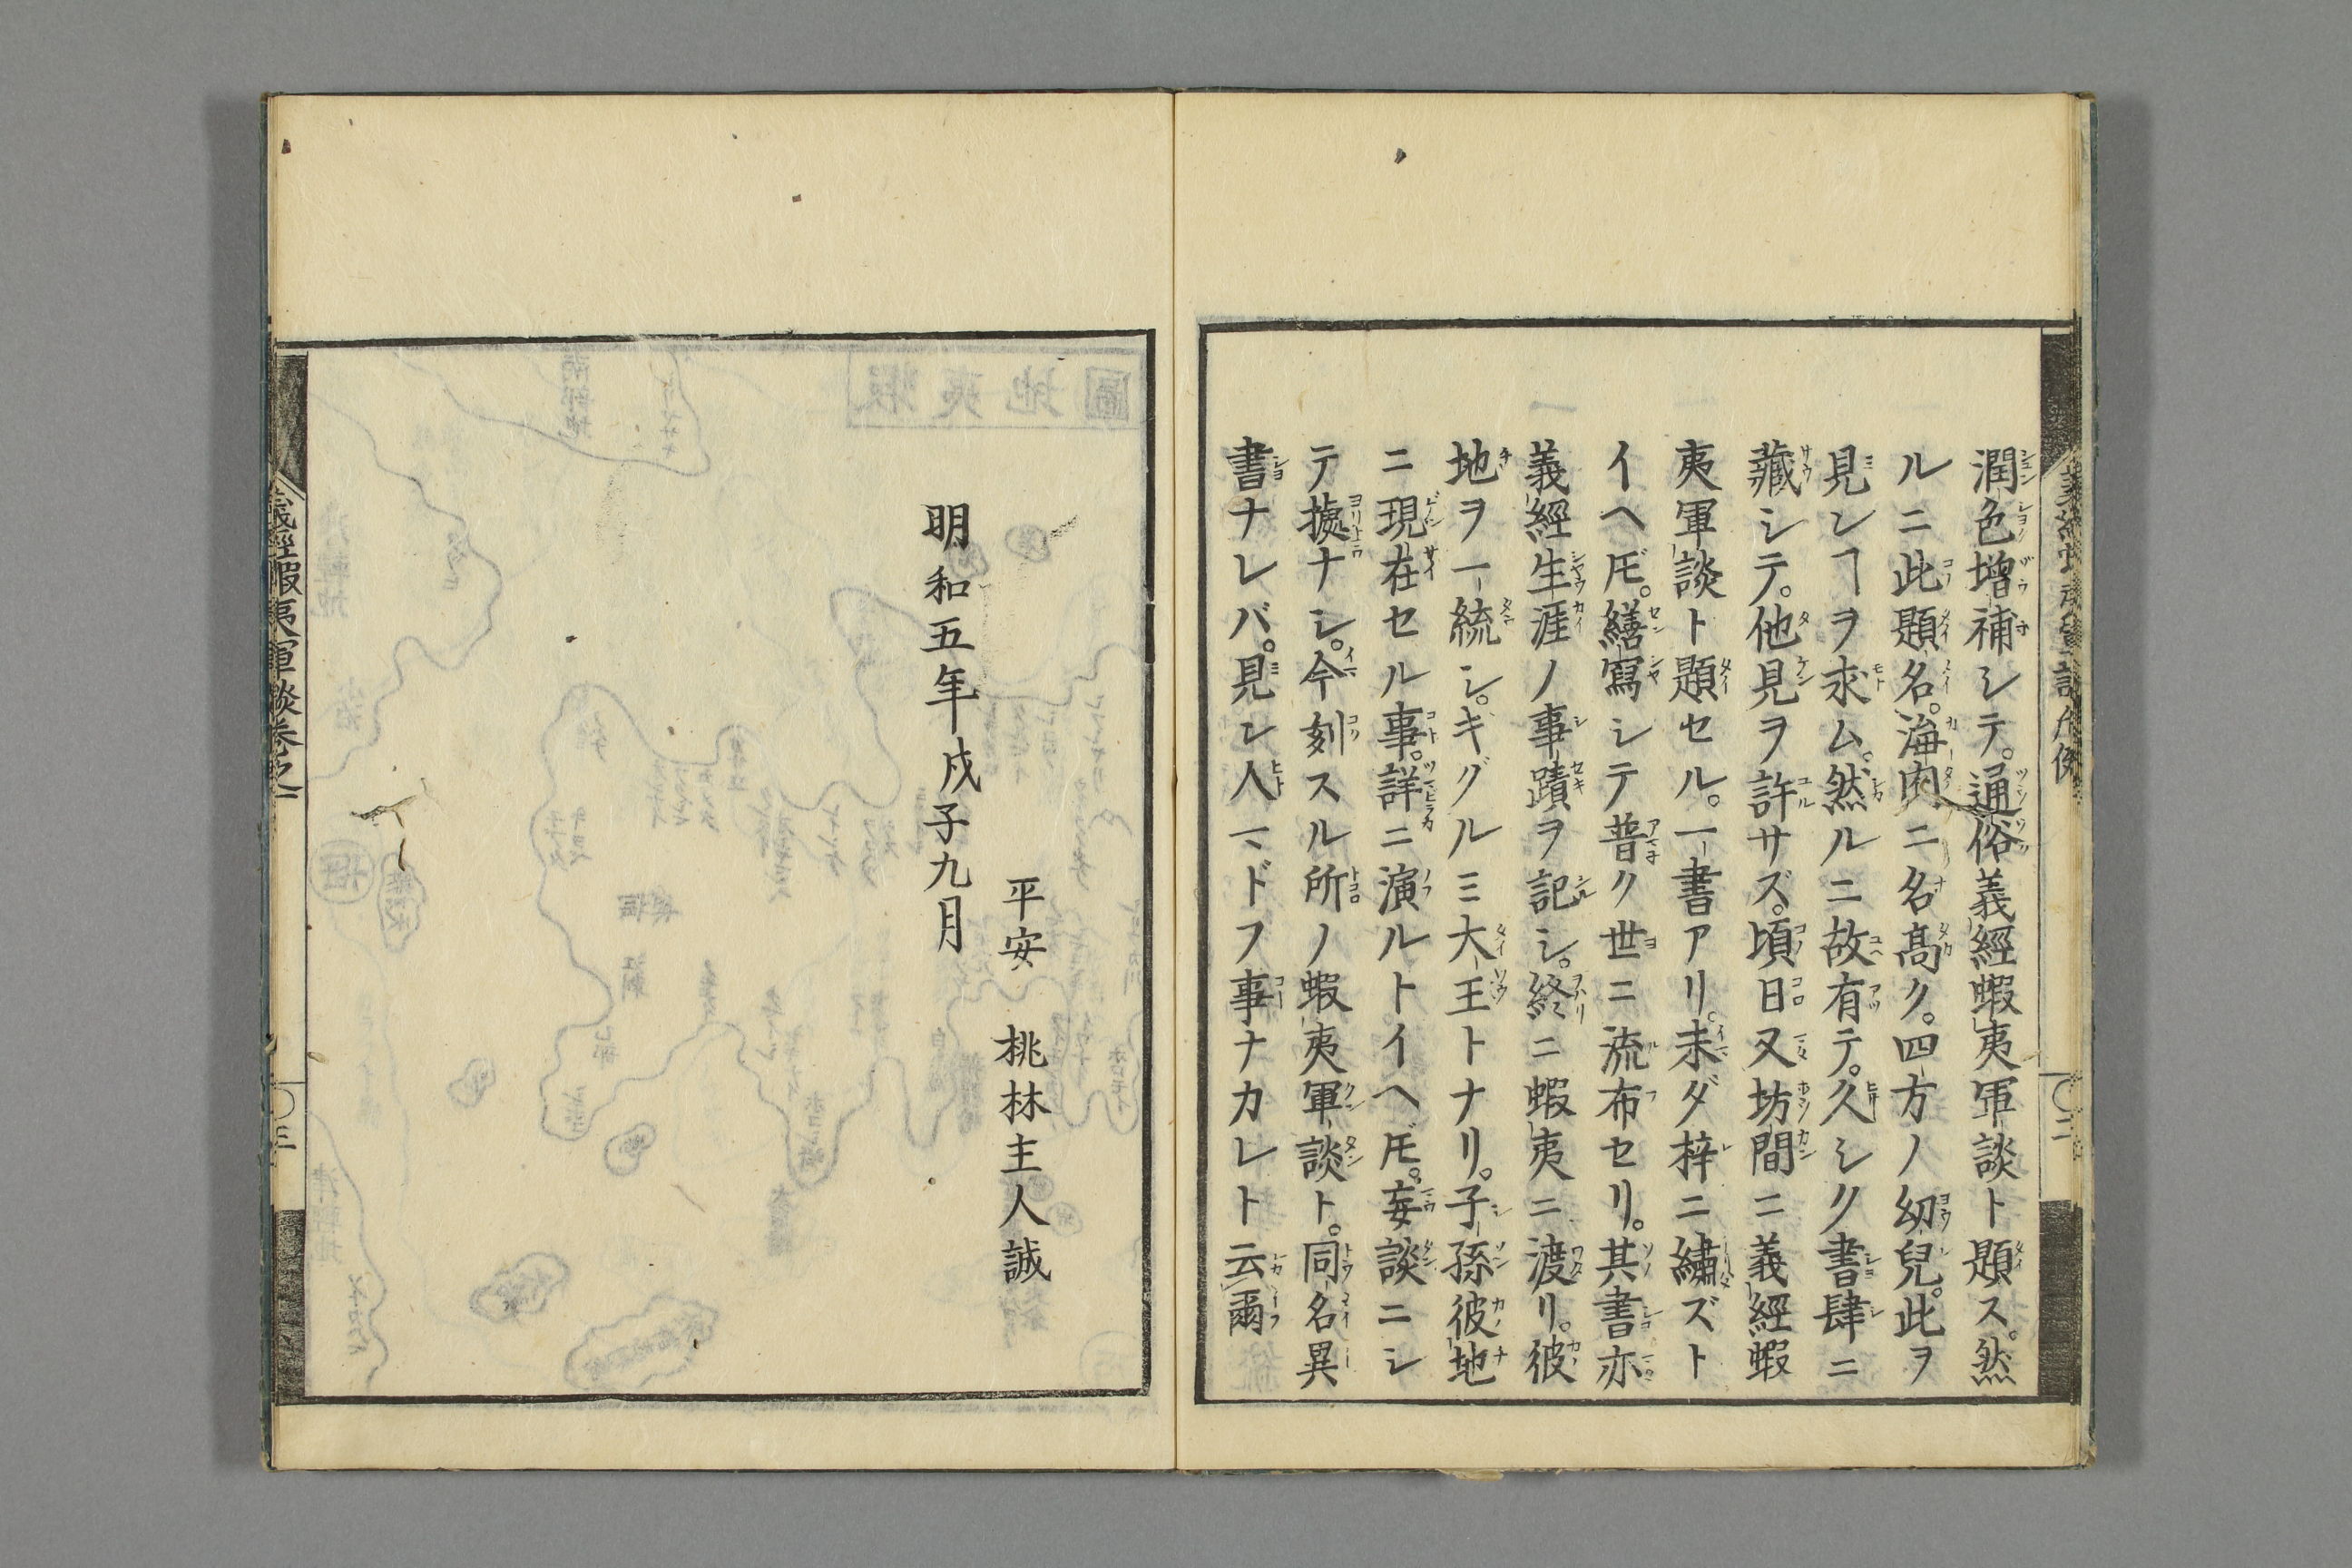 潤色増補シテ。通俗義經蝦夷軍談ト題ス。然
ルニ此題名。海内ニ名髙ク。四方ノ幼兒。此ヲ
見ンヿヲ求ム。然ルニ故有テ。久シク書肆ニ
藏シテ。他見ヲ許サズ。頃日又坊間ニ義經蝦
夷軍談ト題セル。一書アリ。未ダ梓ニ繡ズト
イヘ𪜈。繕寫シテ普ク世ニ流布セリ。其書亦
義經生涯ノ事蹟ヲ記シ。終ニ蝦夷ニ渡リ。彼
地ヲ一統シ。キグルミ大王トナリ。子孫彼地
ニ現在セル事。詳ニ演ルトイヘ𪜈。妄談ニシ
テ據ナシ。今刻スル所ノ蝦夷軍談ト。同名異
書ナレバ。見ン人マドフ事ナカレト云爾
平安 桃林主人誠
明和五年戊子九月
義經蝦夷軍談卷之一
三